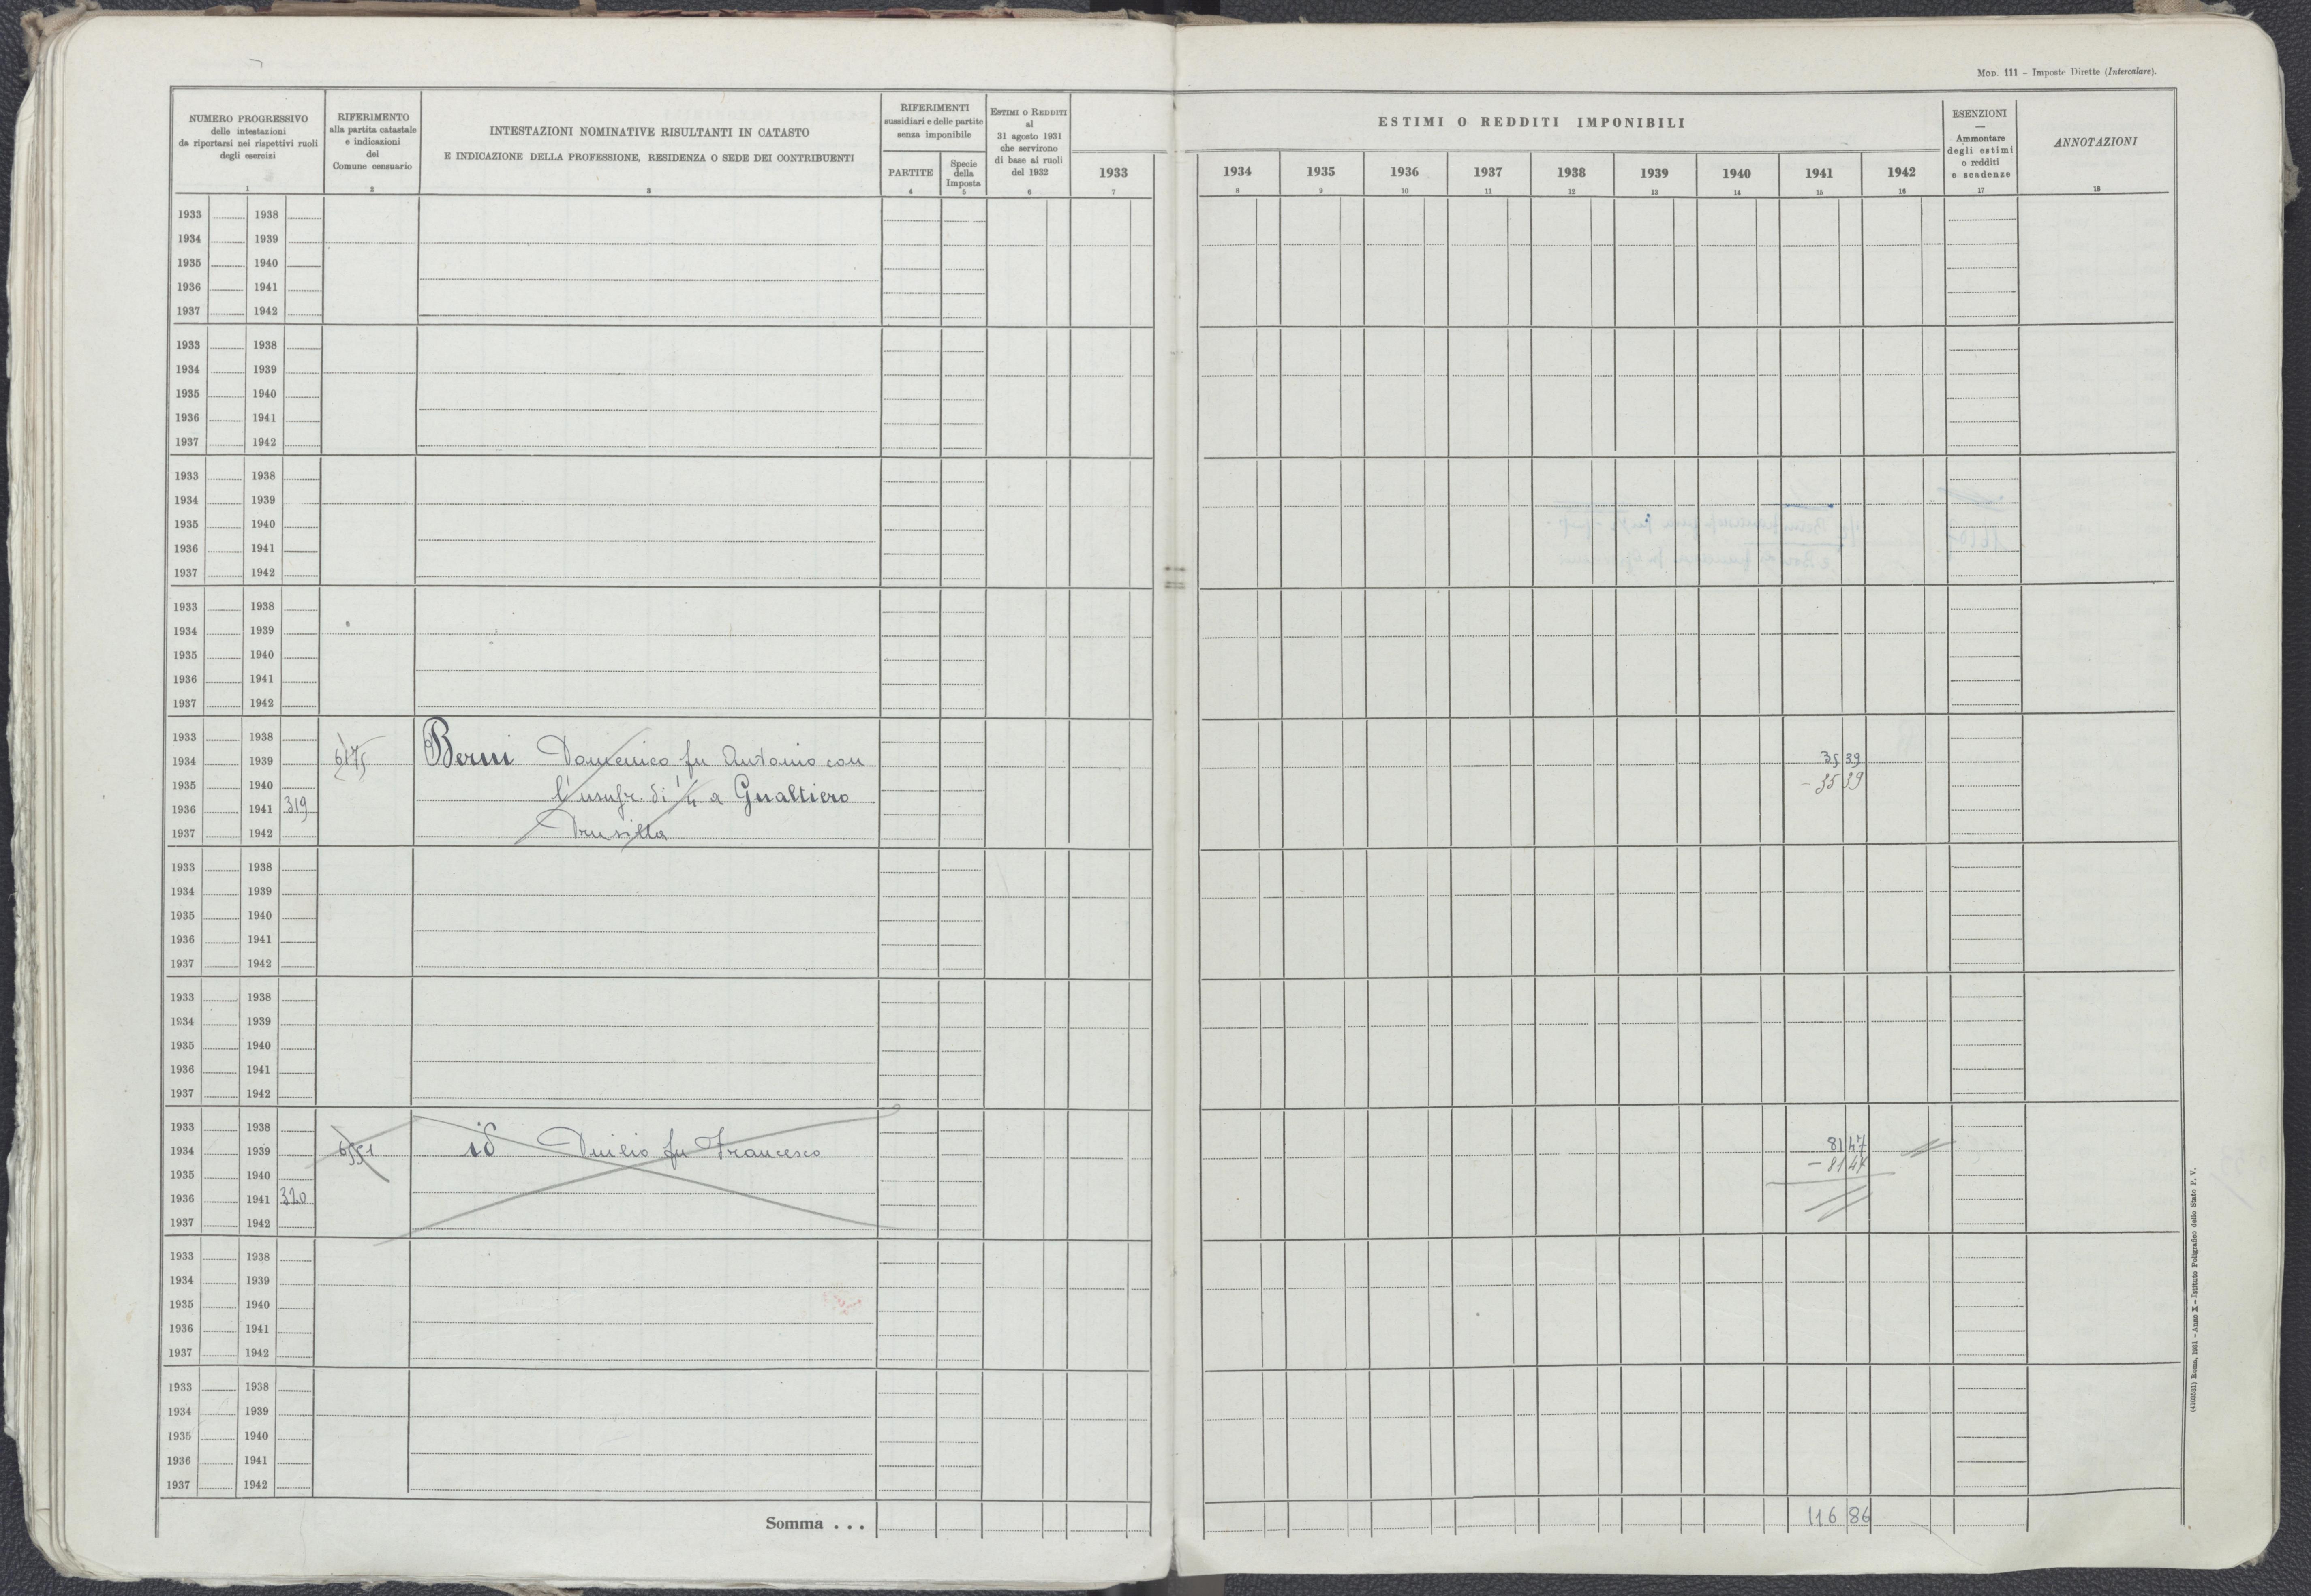 MOD. 111 - Imposte Dirette (Intercalare).
NUMERO PROGRESSIVO
delle intestazioni
da riportarsi nei rispettivi ruoli
degli esercizi
1
RIFERIMENTO
alla partita catastale
e indicazioni
del
Comune censuario
2
INTESTAZIONI NOMINATIVE RISULTANTI IN CATASTO
E INDICAZIONE DELLA PROFESSIONE, RESIDENZA O SEDE DEI CONTRIBUENTI
3
RIFERIMENTI
sussidiari e delle partite
senza imponibile
PARTITE
4
Specie
della
Imposta
5
ESTIMI O REDDITI
al
31 agosto 1931
che servirono
di base ai ruoli
del 1932
6
1933
7
ESTIMI O REDDITI IMPONIBILI
1934 1935 1936 1937 1938 1939 1940 1941 1942
8 9 10 11 12 13 14 15 16
ESENZIONI
—
Ammontare
degli estimi
o redditi
e scadenze
17
ANNOTAZIONI
18
1933 1938
1934 1939
1935 1940
1936 1941
1937 1942
1933 1938
1934 1939
1935 1940
1936 1941
1937 1942
1933 1938
1934 1939
1935 1940
1936 1941
1937 1942
1933 1938
1934 1939
1935 1940
1936 1941
1937 1942
1933 1938
1934 1939 6175 Berni Domenico fu Antonio con 35 39
1935 1940 l'usufr. di 1/4 a Gualtiero - 35 39
1936 1941 319
1937 1942 Drusilla
1933 1938
1934 1939
1935 1940
1936 1941
1937 1942
1933 1938
1934 1939
1935 1940
1936 1941
1937 1942
1933 1938
1934 1939 id Duilio fu Francesco 81 47
1935 1940 - 81 47
1936 1941 320
1937 1942
1933 1938
1934 1939
1935 1940
1936 1941
1937 1942
1933 1938
1934 1939
1935 1940
1936 1941
1937 1942
Somma . . . 116 86
(4103521) Roma, 1931 - Anno X - Istituto Poligrafico dello Stato P. V.